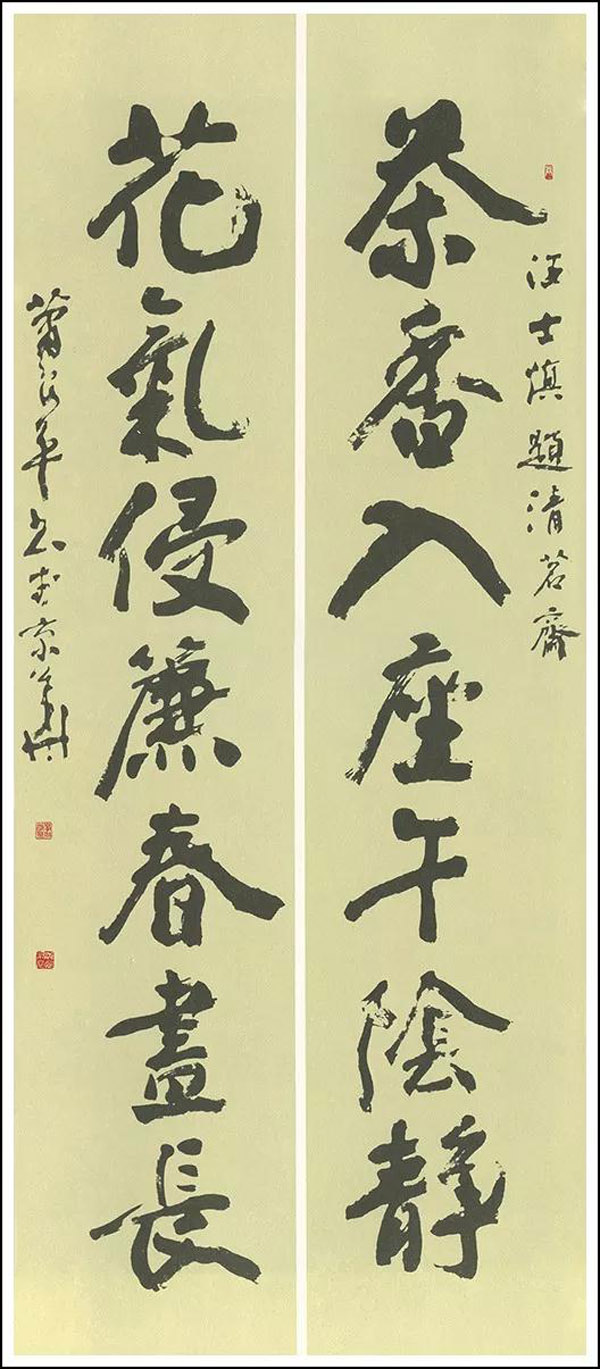 汪士慎題清茗齋
茶香入座午陰靜
花氣侵簾春晝長
平書於京華